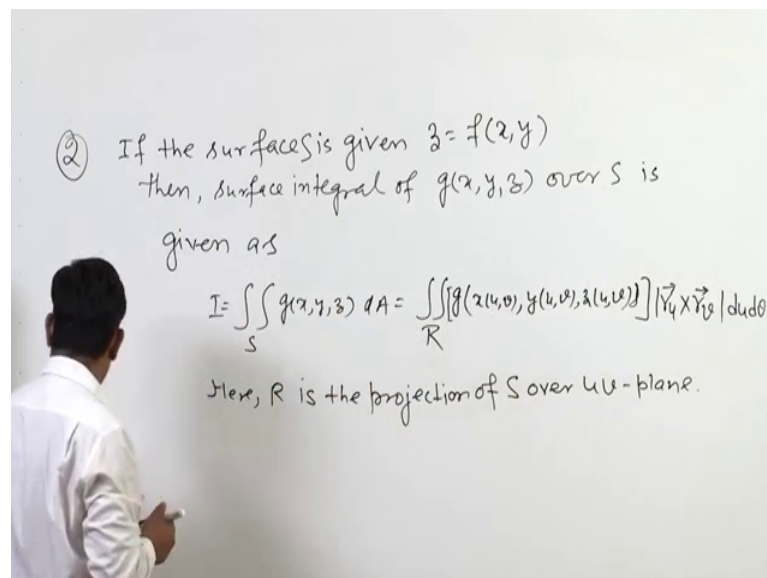 ② If the surface S is given z = f(x,y)
then, surface integral of g(x,y,z) over S is
given as
I = ∫∫ g(x,y,z) dA = ∫∫ [g(x(u,v), y(u,v), z(u,v))] |r⃗u × r⃗v| du dv
S R
Here, R is the projection of S over uv-plane.